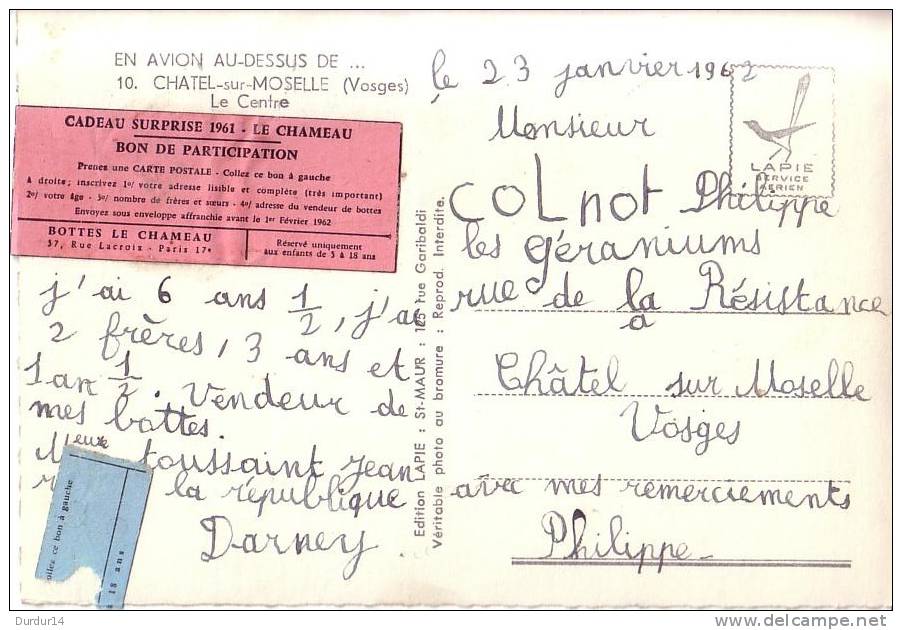 EN AVION AU-DESSUS DE ...
10. CHATEL-sur-MOSELLE (Vosges)
Le Centre
CADEAU SURPRISE 1961 - LE CHAMEAU
BON DE PARTICIPATION
Prenez une CARTE POSTALE - Collez ce bon à gauche
A droite; inscrivez 1°/ votre adresse lisible et complète (très important)
2°/ votre âge - 3°/ nombre de frères et sœurs - 4°/ adresse du vendeur de bottes
Envoyez sous enveloppe affranchie avant le 1er Février 1962
BOTTES LE CHAMEAU
37, Rue Lacroix - Paris 17e
Réservé uniquement
aux enfants de 5 à 18 ans
j'ai 6 ans 1/2, j'ai
2 frères, 3 ans et
1 an 1/2. Vendeur de
mes bottes.
toussaint jean
la république
Darney.
ollez ce bon à gauche
à 18 ans
Edition LAPIE : St-MAUR : 125 rue Garibaldi
Véritable photo au bromure : Reprod. Interdite.
le 23 janvier 1962
LAPIE
SERVICE
AÉRIEN
Monsieur
COLnot Philippe
les géraniums
rue de la Résistance
a
Châtel sur Moselle
Vosges
avec mes remerciements
Philippe
Durdur14
www.delcampe.net